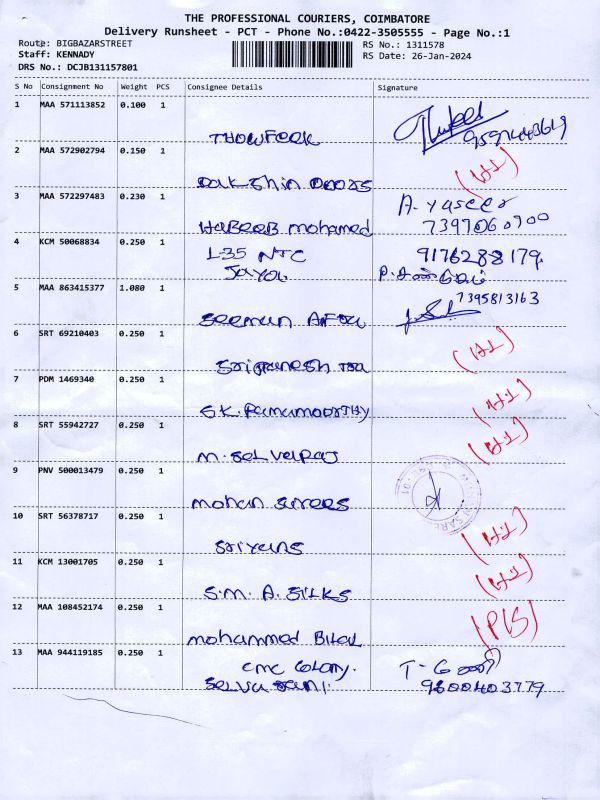 THE PROFESSIONAL COURIERS, COIMBATORE
Delivery Runsheet - PCT - Phone No.:0422-3505555 - Page No.:1
Route: BIGBAZARSTREET
RS No.: 1311578
Staff: KENNADY
RS Date: 26-Jan-2024
DRS No.: DCJB131157801
S No Consignment No Weight PCS Consignee Details Signature
1 MAA 571113852 0.100 1
THOWFEEK
2 MAA 572902794 0.150 1
Dakshin Doors
3 MAA 572297483 0.230 1 A. yaseer
HABEEB mohamed 7397060900
4 KCM 50068834 0.250 1 L-35 NTC 9176288179
5 MAA 863415377 1.080 1 7395813163
6 SRT 69210403 0.250 1
7 PDM 1469340 0.250 1
S.K. Ramamoorthy
8 SRT 55942727 0.250 1
M. Selveraj
9 PNV 500013479 0.250 1
mohan sarees
10 SRT 56378717 0.250 1
11 KCM 13001705 0.250 1
S.M. A. SILKS
12 MAA 108452174 0.250 1
mohammed Bilal (P/S)
13 MAA 944119185 0.250 1 CMC Colony.
9600403779